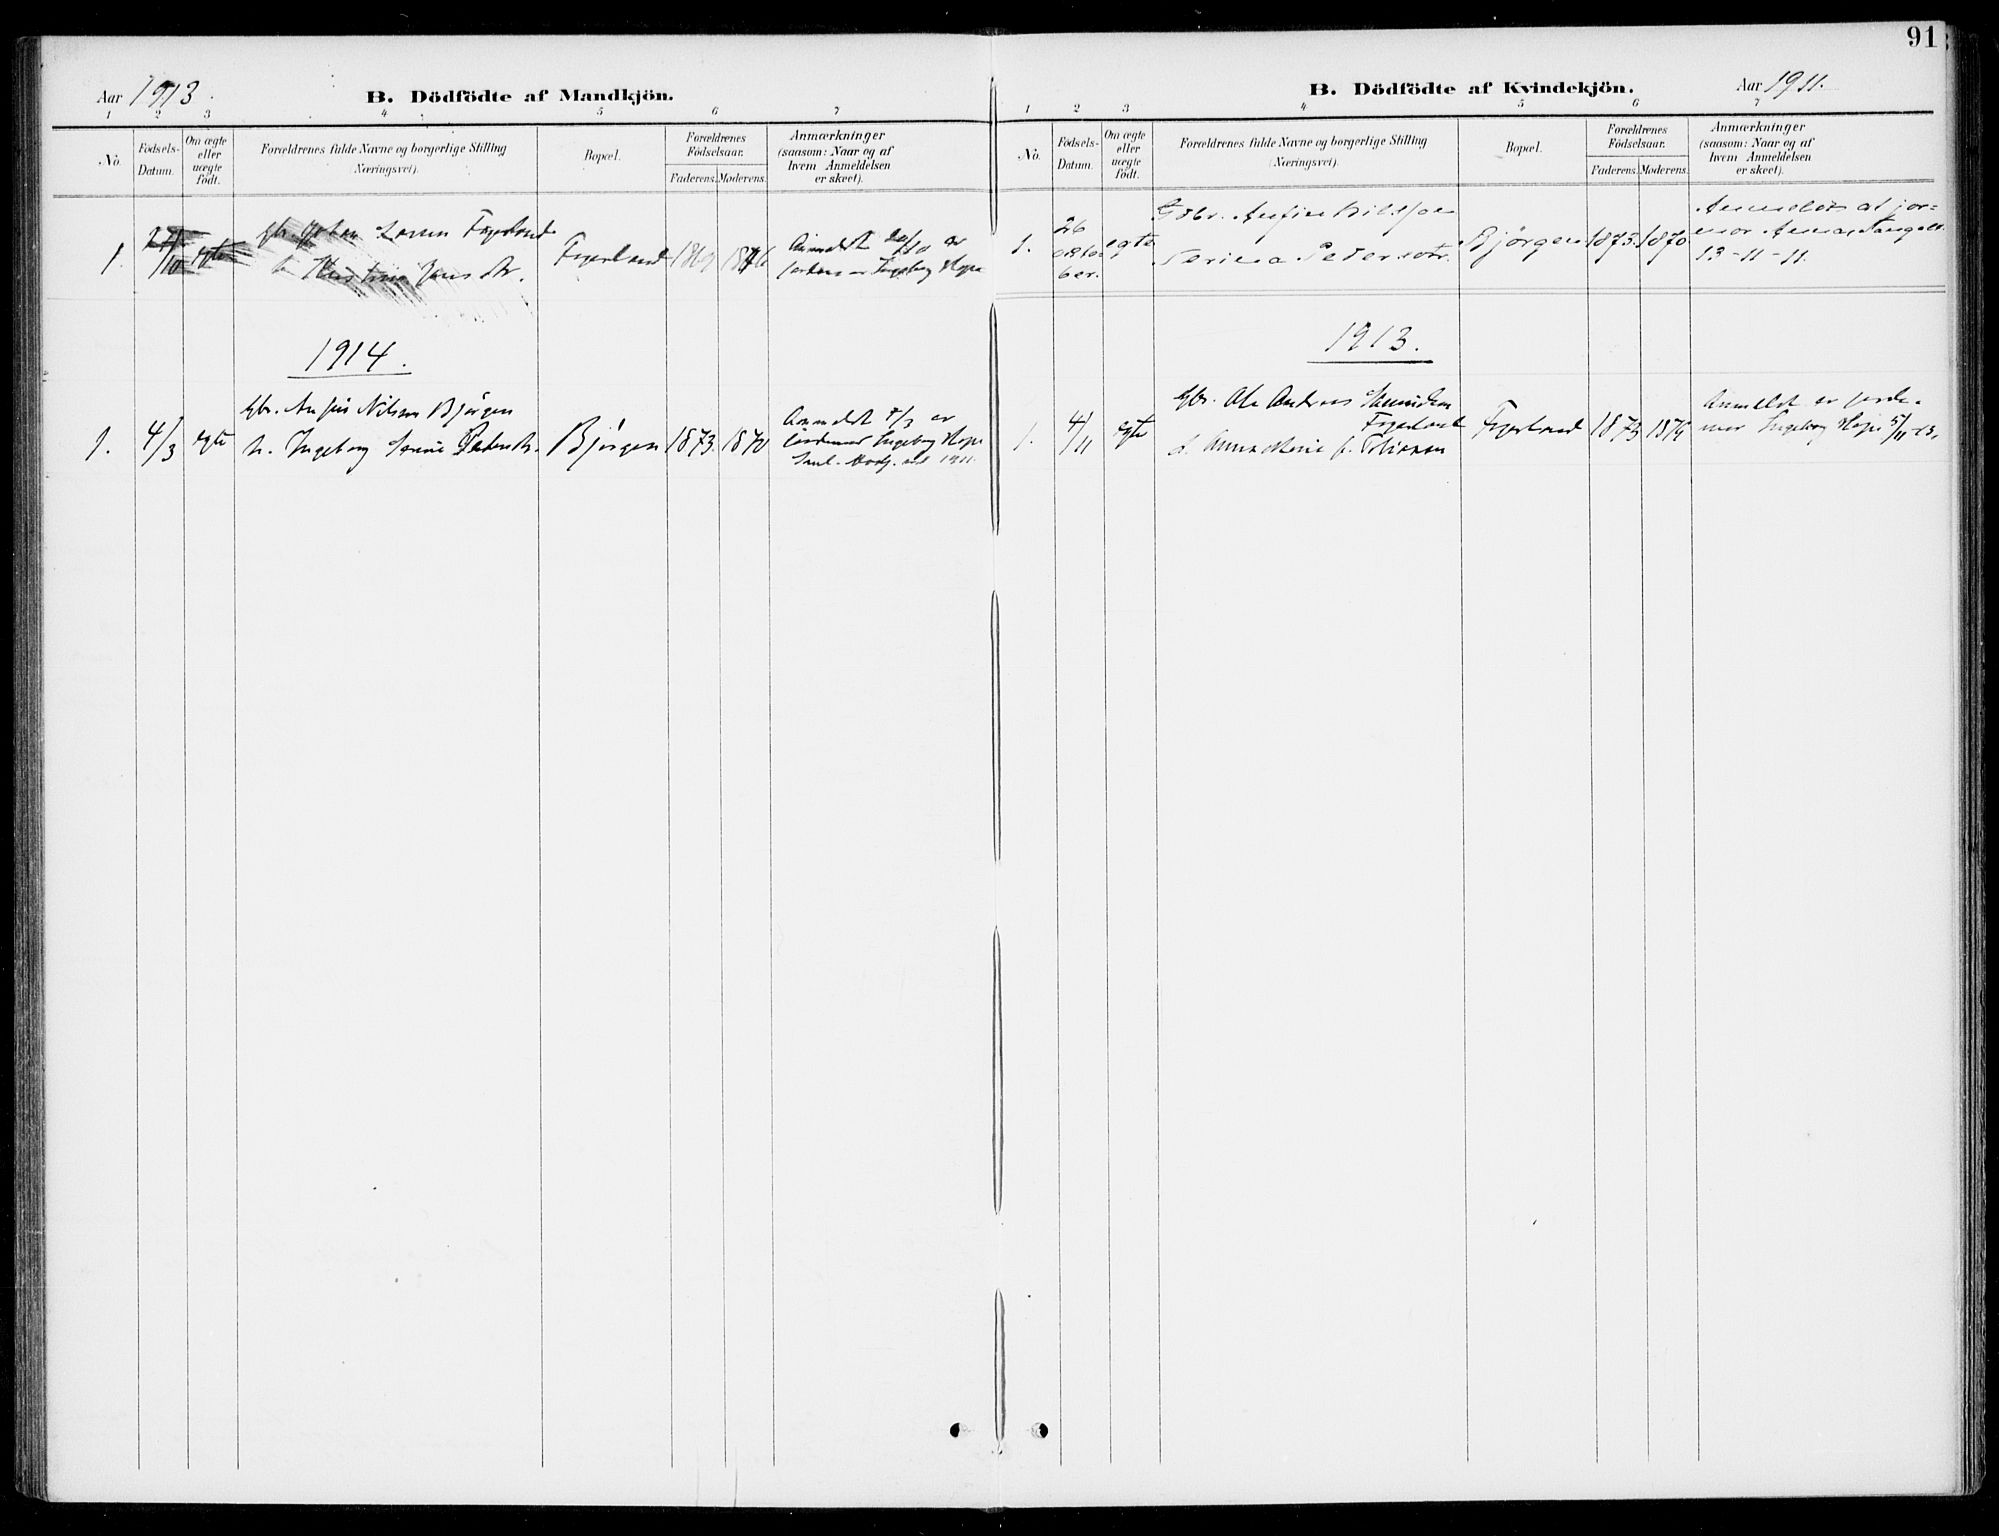 91
Aar 1913.
B. Dödfödte af Mandkjön.
1 2 3 4 5 6 7
No.
Födsels-
Datum.
Om ægte
eller
uægte
födt.
Forældrenes fulde Navne og borgerlige Stilling
(Næringsvei).
Bopæl.
Forældrenes
Födselsaar.
Faderens. Moderens.
Anmærkninger
(saasom: Naar og af
hvem Anmeldelsen
er skeet).
1. 27/10 egte
gbr. Johan Larsen Fagerland
h. Kristina Jens dtr.
Fagerland 1869 1876
Anmeldt av
jordmor Ingeborg Hope
1914.
1. 4/3 egte
Gbr. Anfin Nilsen Bjørgen
h. Ingeborg Serine Pedersdtr.
Bjørgen 1873. 1870
Anmeldt 5/3 av
jordmor Ingeborg Hope
1911.
B. Dödfödte af Kvindekjön.
Aar 1911.
1 2 3 4 5 6 7
No.
Födsels-
Datum.
Om ægte
eller
uægte
födt.
Forældrenes fulde Navne og borgerlige Stilling
(Næringsvei).
Bopæl.
Forældrenes
Födselsaar.
Faderens. Moderens.
Anmærkninger
(saasom: Naar og af
hvem Anmeldelsen
er skeet).
1. 26 oktober. egte
Gbr. Anfin Nilsson
Serina Pedersdtr.
Bjørgen 1873. 1870
Anmeldt af jor=
mor Anna
13-11-11.
1913.
1. 4/11 egte
Gbr. Ole Andreas
Fagerland
Fagerland 1873 1874
Anmeldt av jorde-
mor Ingeborg Hope 5/11-13.